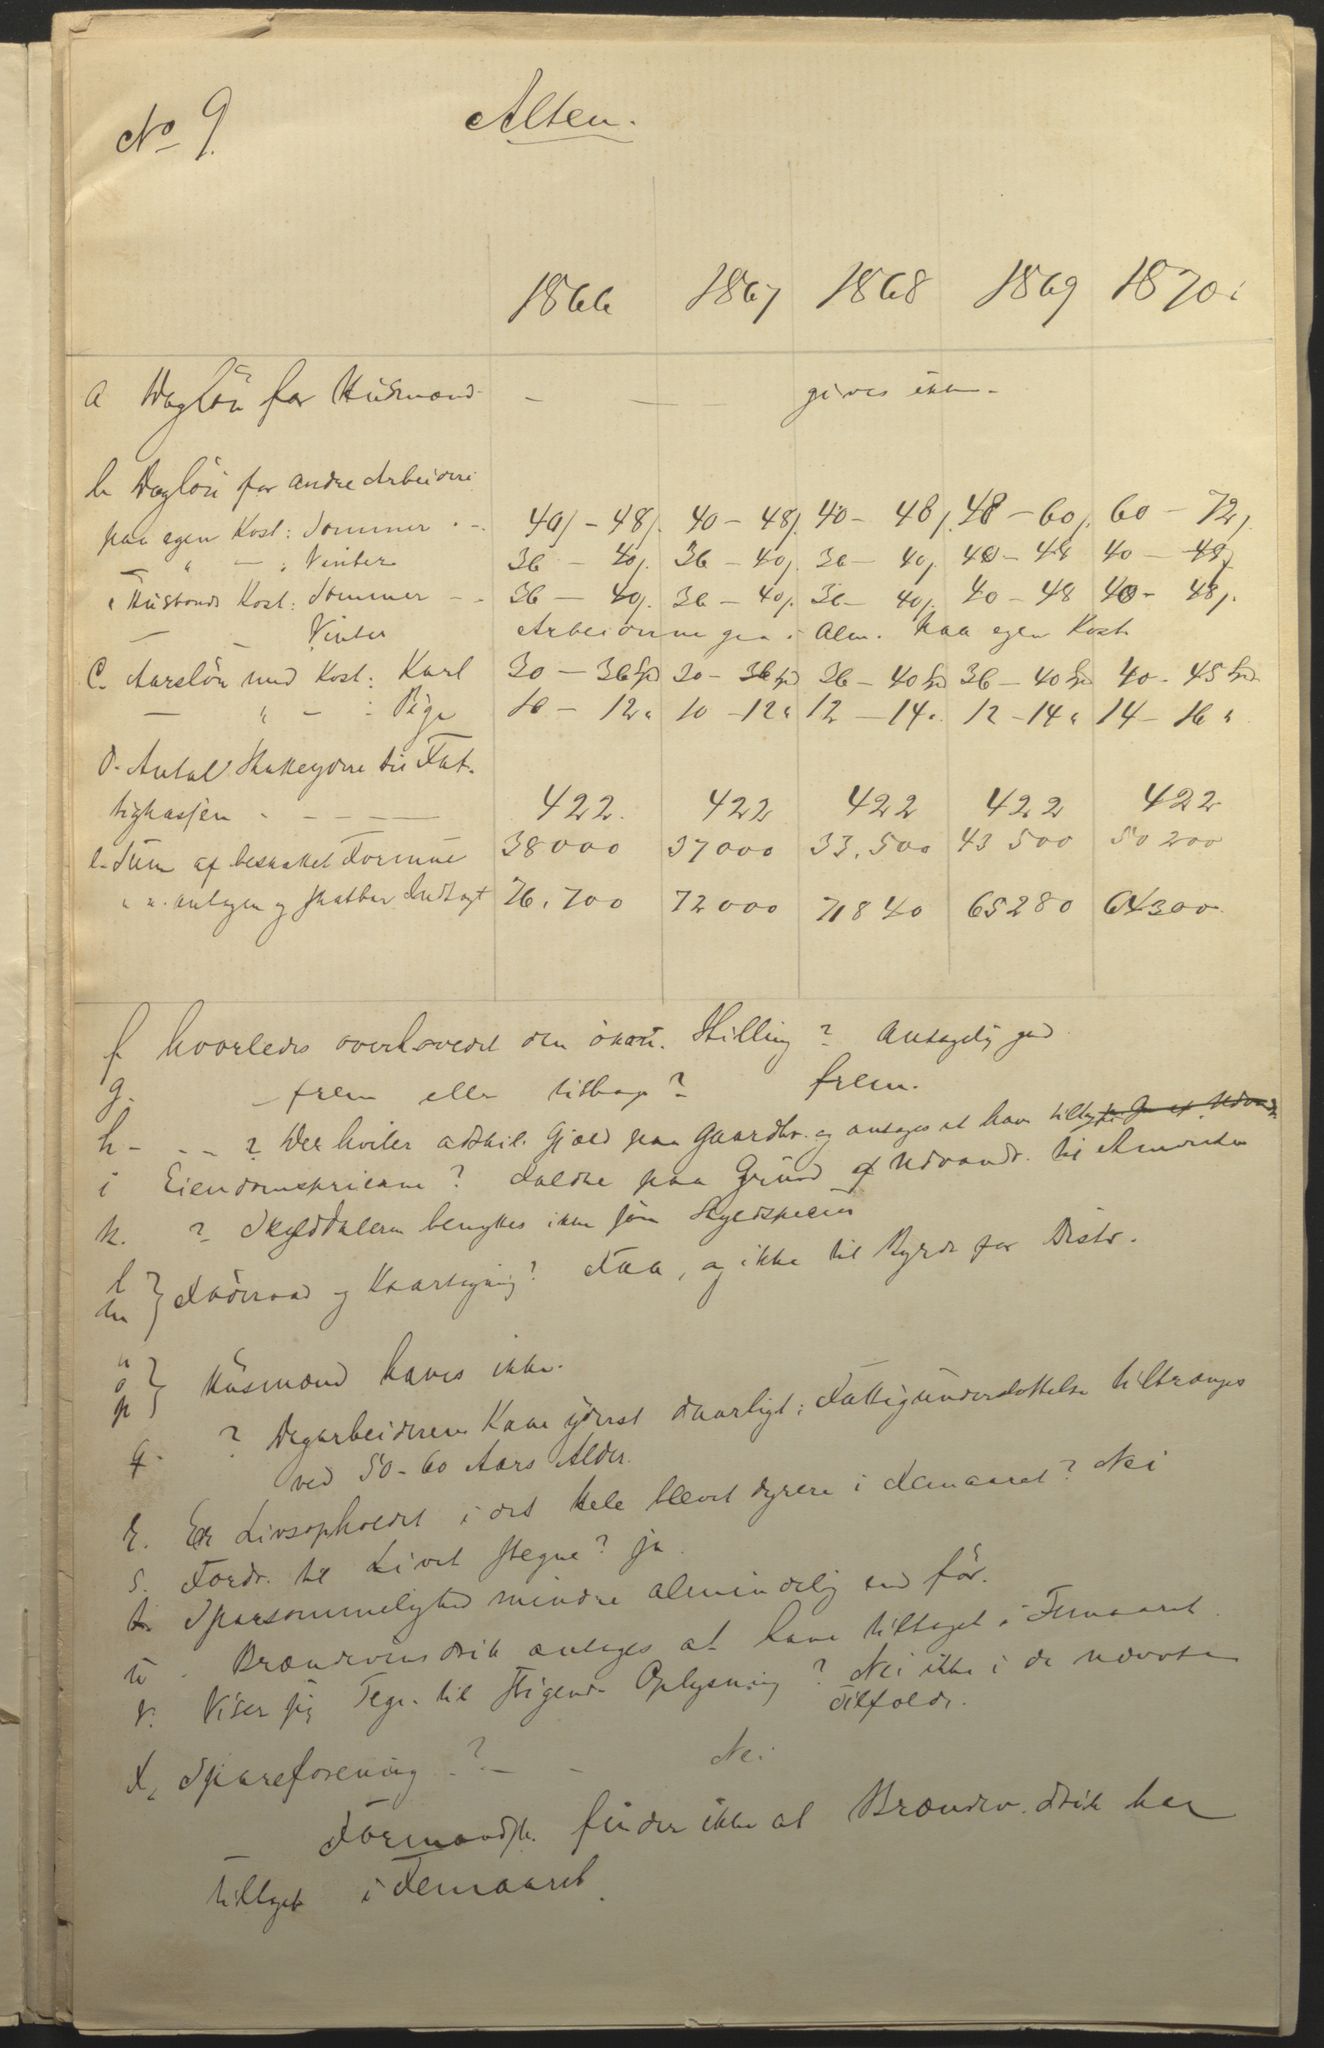 No 9.
Alten.
1866 1867 1868 1869 1870
a Daglön for Husmænd - — gives ikke -
b Daglön for andre Arbeidere
paa egen Kost: Sommer - 40 - 48 40 - 48 40 - 48 48 - 60 60 - 72
" — " Vinter 36 - 40 36 - 40 36 - 40 40 - 48 40 - 48
i Husbonds Kost: Sommer - - 36 - 40 36 - 40 36 - 40 40 - 48 40 - 48
— - Vinter Arbeiderne gaa i Alm. paa egen Kost
C. Aarslön med Kost: Karl 30 - 36 Spd 30 - 36 Spd 36 - 40 Spd 36 - 40 Spd 40 - 45 Spd
— " - : Pige 10 - 12 " 10 - 12 " 12 - 14 " 12 - 14 " 14 - 16 "
d. Antal Skatteydere til Fat-
tigkassen - - — 422. 422 422 422 422
e. Sum af beskattet Formue 38000 37000 33.500 43500 50200
" " antagen og skatbar Indtægt 76.700 72000 71840 65280 64300
f hvorledes overhovedet den ökon. Stilling? Antagelig god
g. - frem eller tilbage? frem.
h - - - ? Der hviler adskil. Gjæld paa Gaardbr. og antages at have tiltaget
i Eiendomspriserne? Faldne paa Grund af Udvandr. til Amerika
k. ? Skylddaleren benyttes ikke som Skyldspecies
l
m } Föderaad og Kaartagning? Faa, og ikke til Byrde for Distr.
n
o
p } Husmænd haves ikke.
q. ? Dagarbeiderens Kaar yderst daarligt: Fattigunderstöttelse tiltrænges
ved 50-60 Aars Alder.
r. Er Livsopholdet i det hele blevet dyrere i Femaaret? Nei
s. Fordr. til Livet stegne? ja
t. Sparsommelighed mindre almindelig end för.
u. Brændevinsdrik antages at have tiltaget i Femaaret.
v. Viser sig Tegn til stigende Oplysning? Nei ikke i de nævnte
Tilfælde.
x, Spareforening? — - Nei
Formandsk. finder ikke at Brændev. drik har
tiltaget i Femaaret.